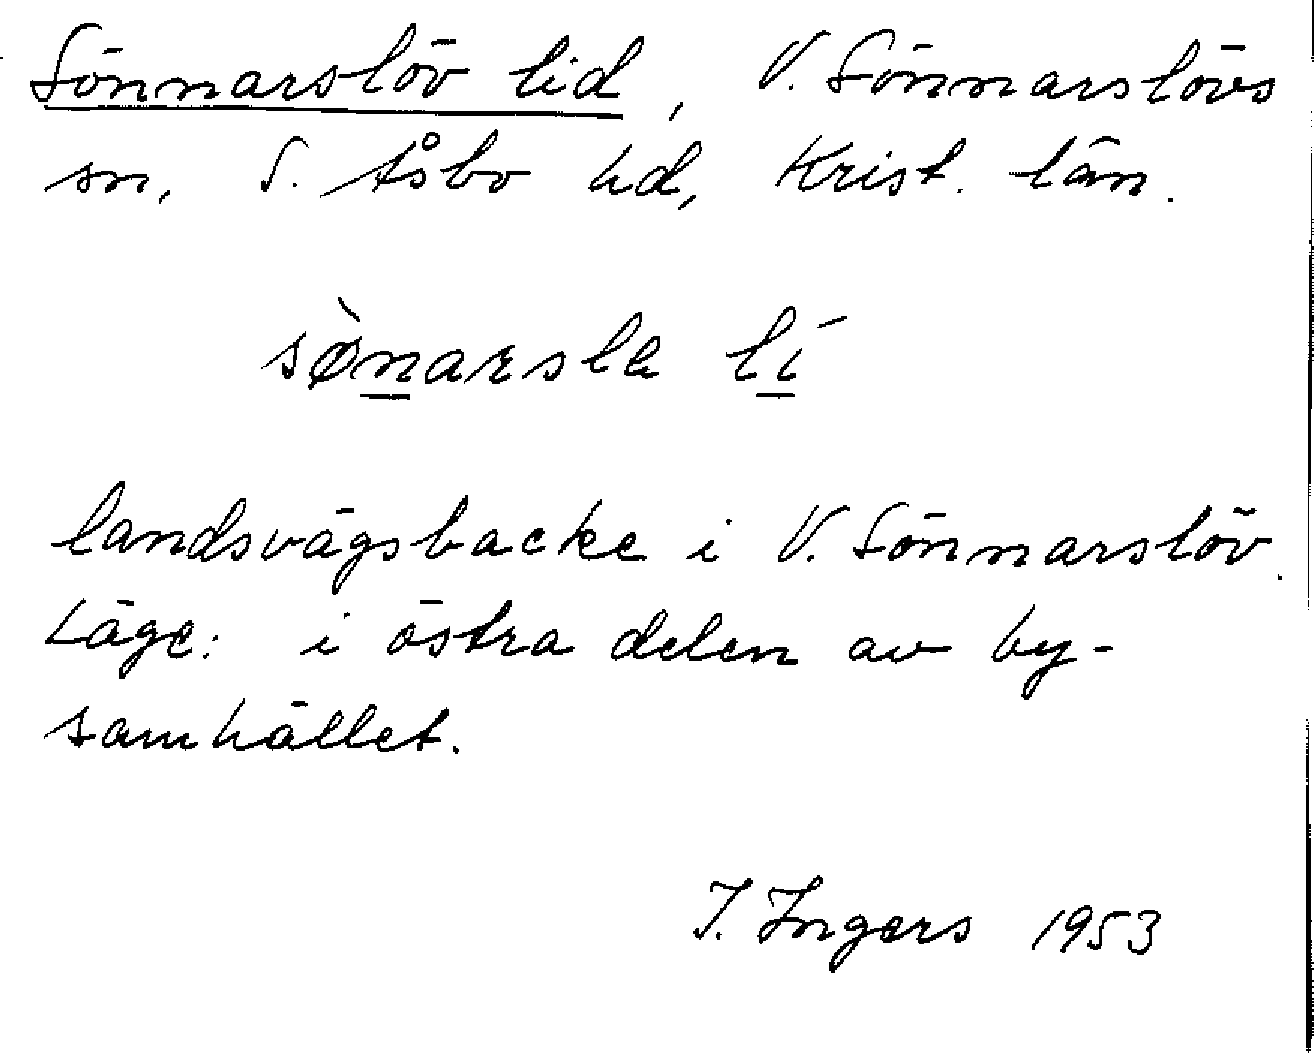 Sönnarslöv lid, V. Sönnarslövs
sn, S. Åsbo hd, Krist. län.
sø̀narsla lí
landsvägsbacke i V. Sönnarslöv.
Läge: i östra delen av by-
samhället.
I. Ingers 1953